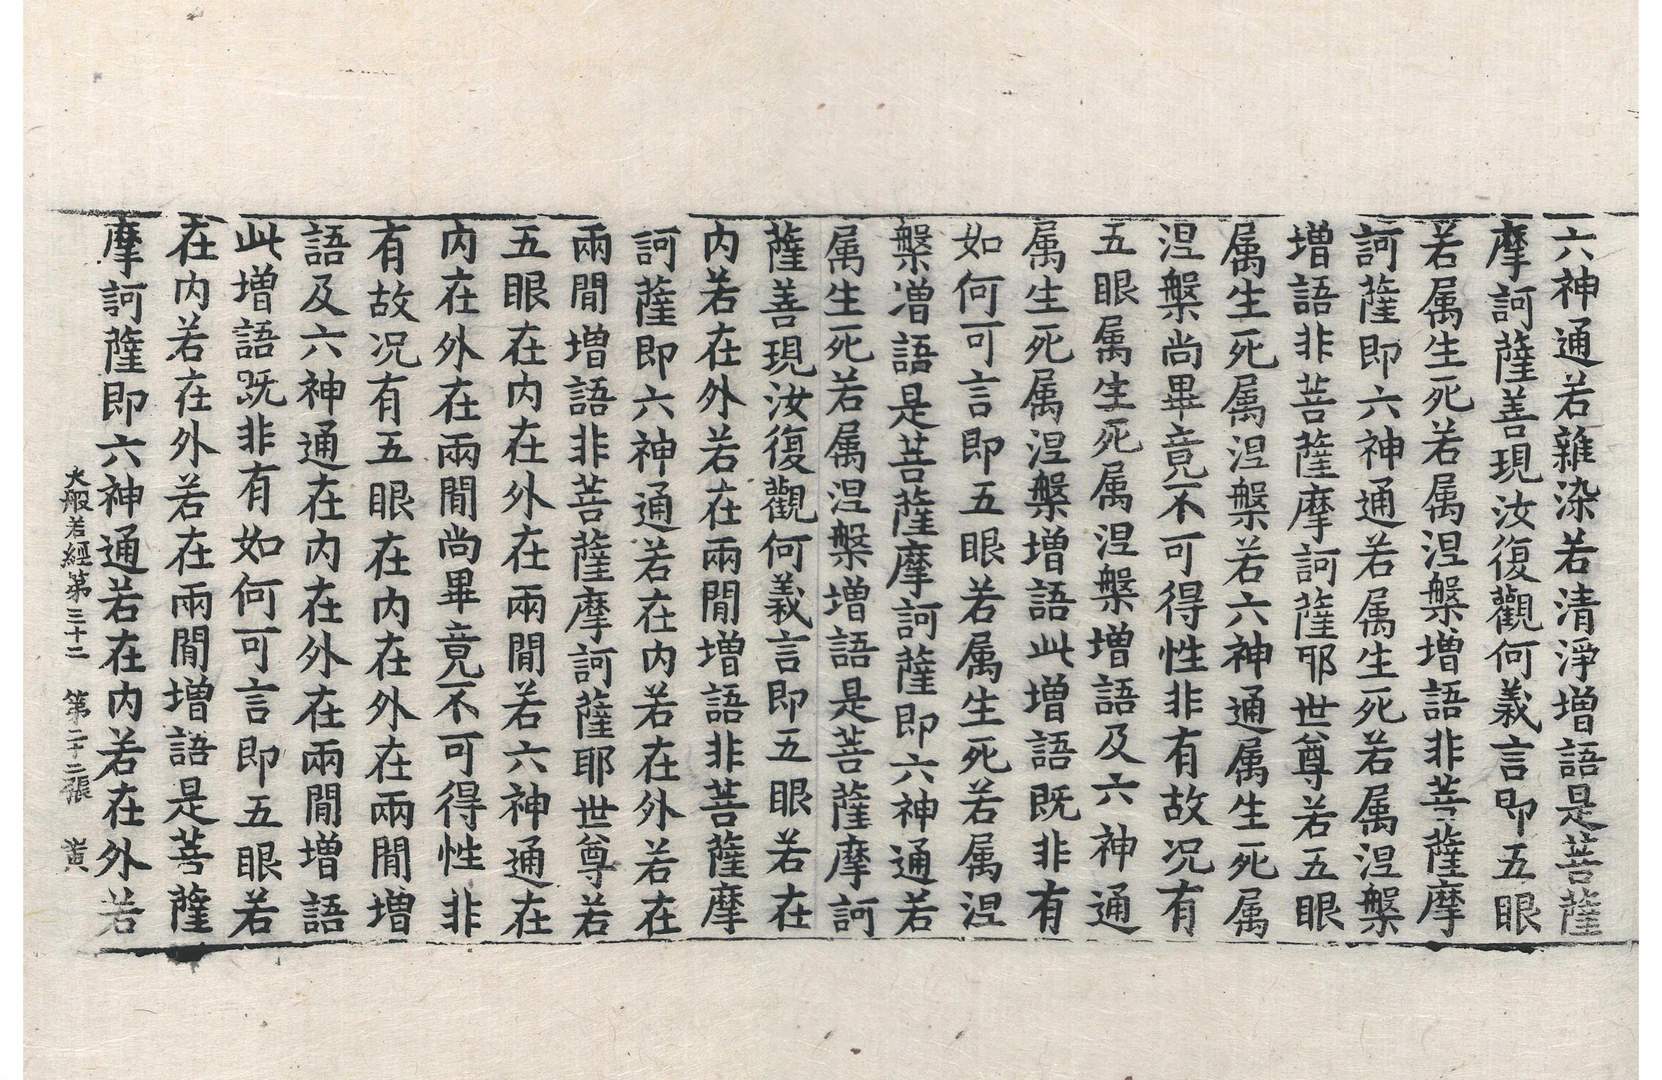 六神通若雜染若清淨增語是菩薩
摩訶薩善現汝復觀何義言即五眼
若属生死若属涅槃增語非菩薩摩
訶薩即六神通若属生死若属涅槃
增語非菩薩摩訶薩耶世尊若五眼
属生死属涅槃若六神通属生死属
涅槃尚畢竟不可得性非有故况有
五眼属生死属涅槃增語及六神通
属生死属涅槃增語此增語既非有
如何可言即五眼若属生死若属涅
槃增語是菩薩摩訶薩即六神通若
属生死若属涅槃增語是菩薩摩訶
薩善現汝復觀何義言即五眼若在
内若在外若在兩閒增語非菩薩摩
訶薩即六神通若在内若在外若在
兩閒增語非菩薩摩訶薩耶世尊若
五眼在内在外在兩閒若六神通在
内在外在兩閒尚畢竟不可得性非
有故况有五眼在内在外在兩閒增
語及六神通在内在外在兩閒增語
此增語既非有如何可言即五眼若
在内若在外若在兩閒增語是菩薩
摩訶薩即六神通若在内若在外若
大般若經第三十二 第二十二張 黄